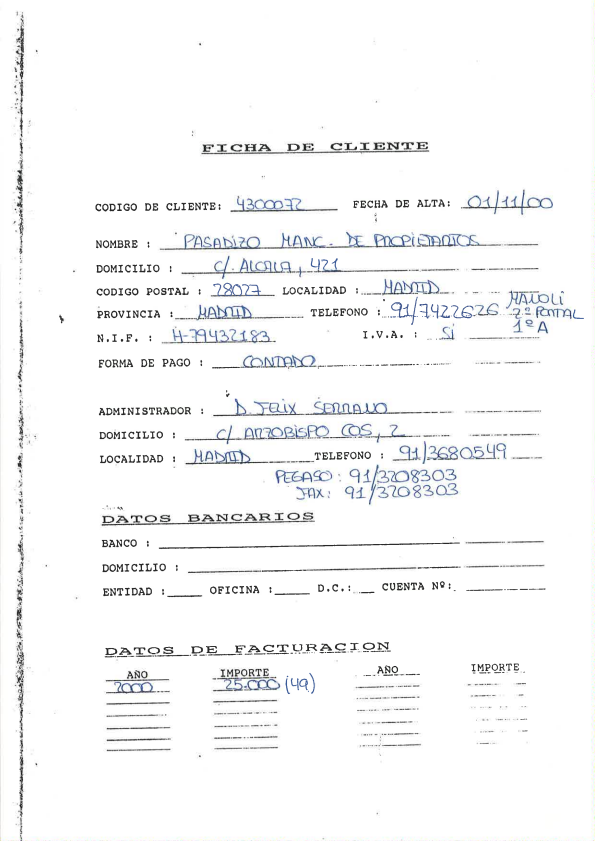 FICHA DE CLIENTE
CODIGO DE CLIENTE: 4300072 FECHA DE ALTA: 01/11/00
NOMBRE : PASADIZO MANC. DE PROPIETARIOS
DOMICILIO : C/. ALCALA, 421
CODIGO POSTAL : 28027 LOCALIDAD : MADRID
PROVINCIA : MADRID TELEFONO : 91/7422626 MALOLI 2º PORTAL
N.I.F. : H-79432183 I.V.A. : SI 1º A
FORMA DE PAGO : CONTADO
ADMINISTRADOR : D. FELIX SERRANO
DOMICILIO : C/ ARZOBISPO COS, 2
LOCALIDAD : MADRID TELEFONO : 91/3680549
PEGASO: 91/3208303
FAX: 91/3208303
DATOS BANCARIOS
BANCO :
DOMICILIO :
ENTIDAD : OFICINA : D.C.: CUENTA Nº:
DATOS DE FACTURACION
AÑO IMPORTE AÑO IMPORTE
2000 25.000 (4a)